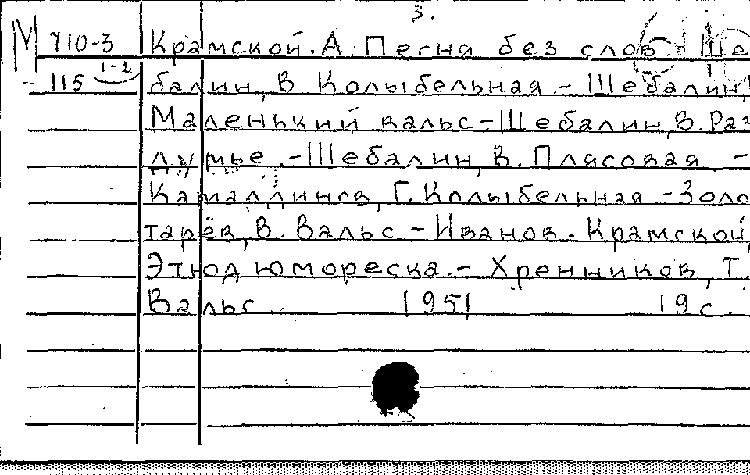 3.
М 710-3 Крамской. А. Песня без слов - Ше
115 1-2 балин, В Колыбельная. - Шебалин,
Маленький вальс - Шебалин, В. Раз
думье. - Шебалин, В. Плясовая. -
Камалдинов, Г. Колыбельная - Золо
тарёв, В. Вальс - Иванов-Крамской,
Этюд юмореска. - Хренников, Т.
Вальс. 1951 19с.